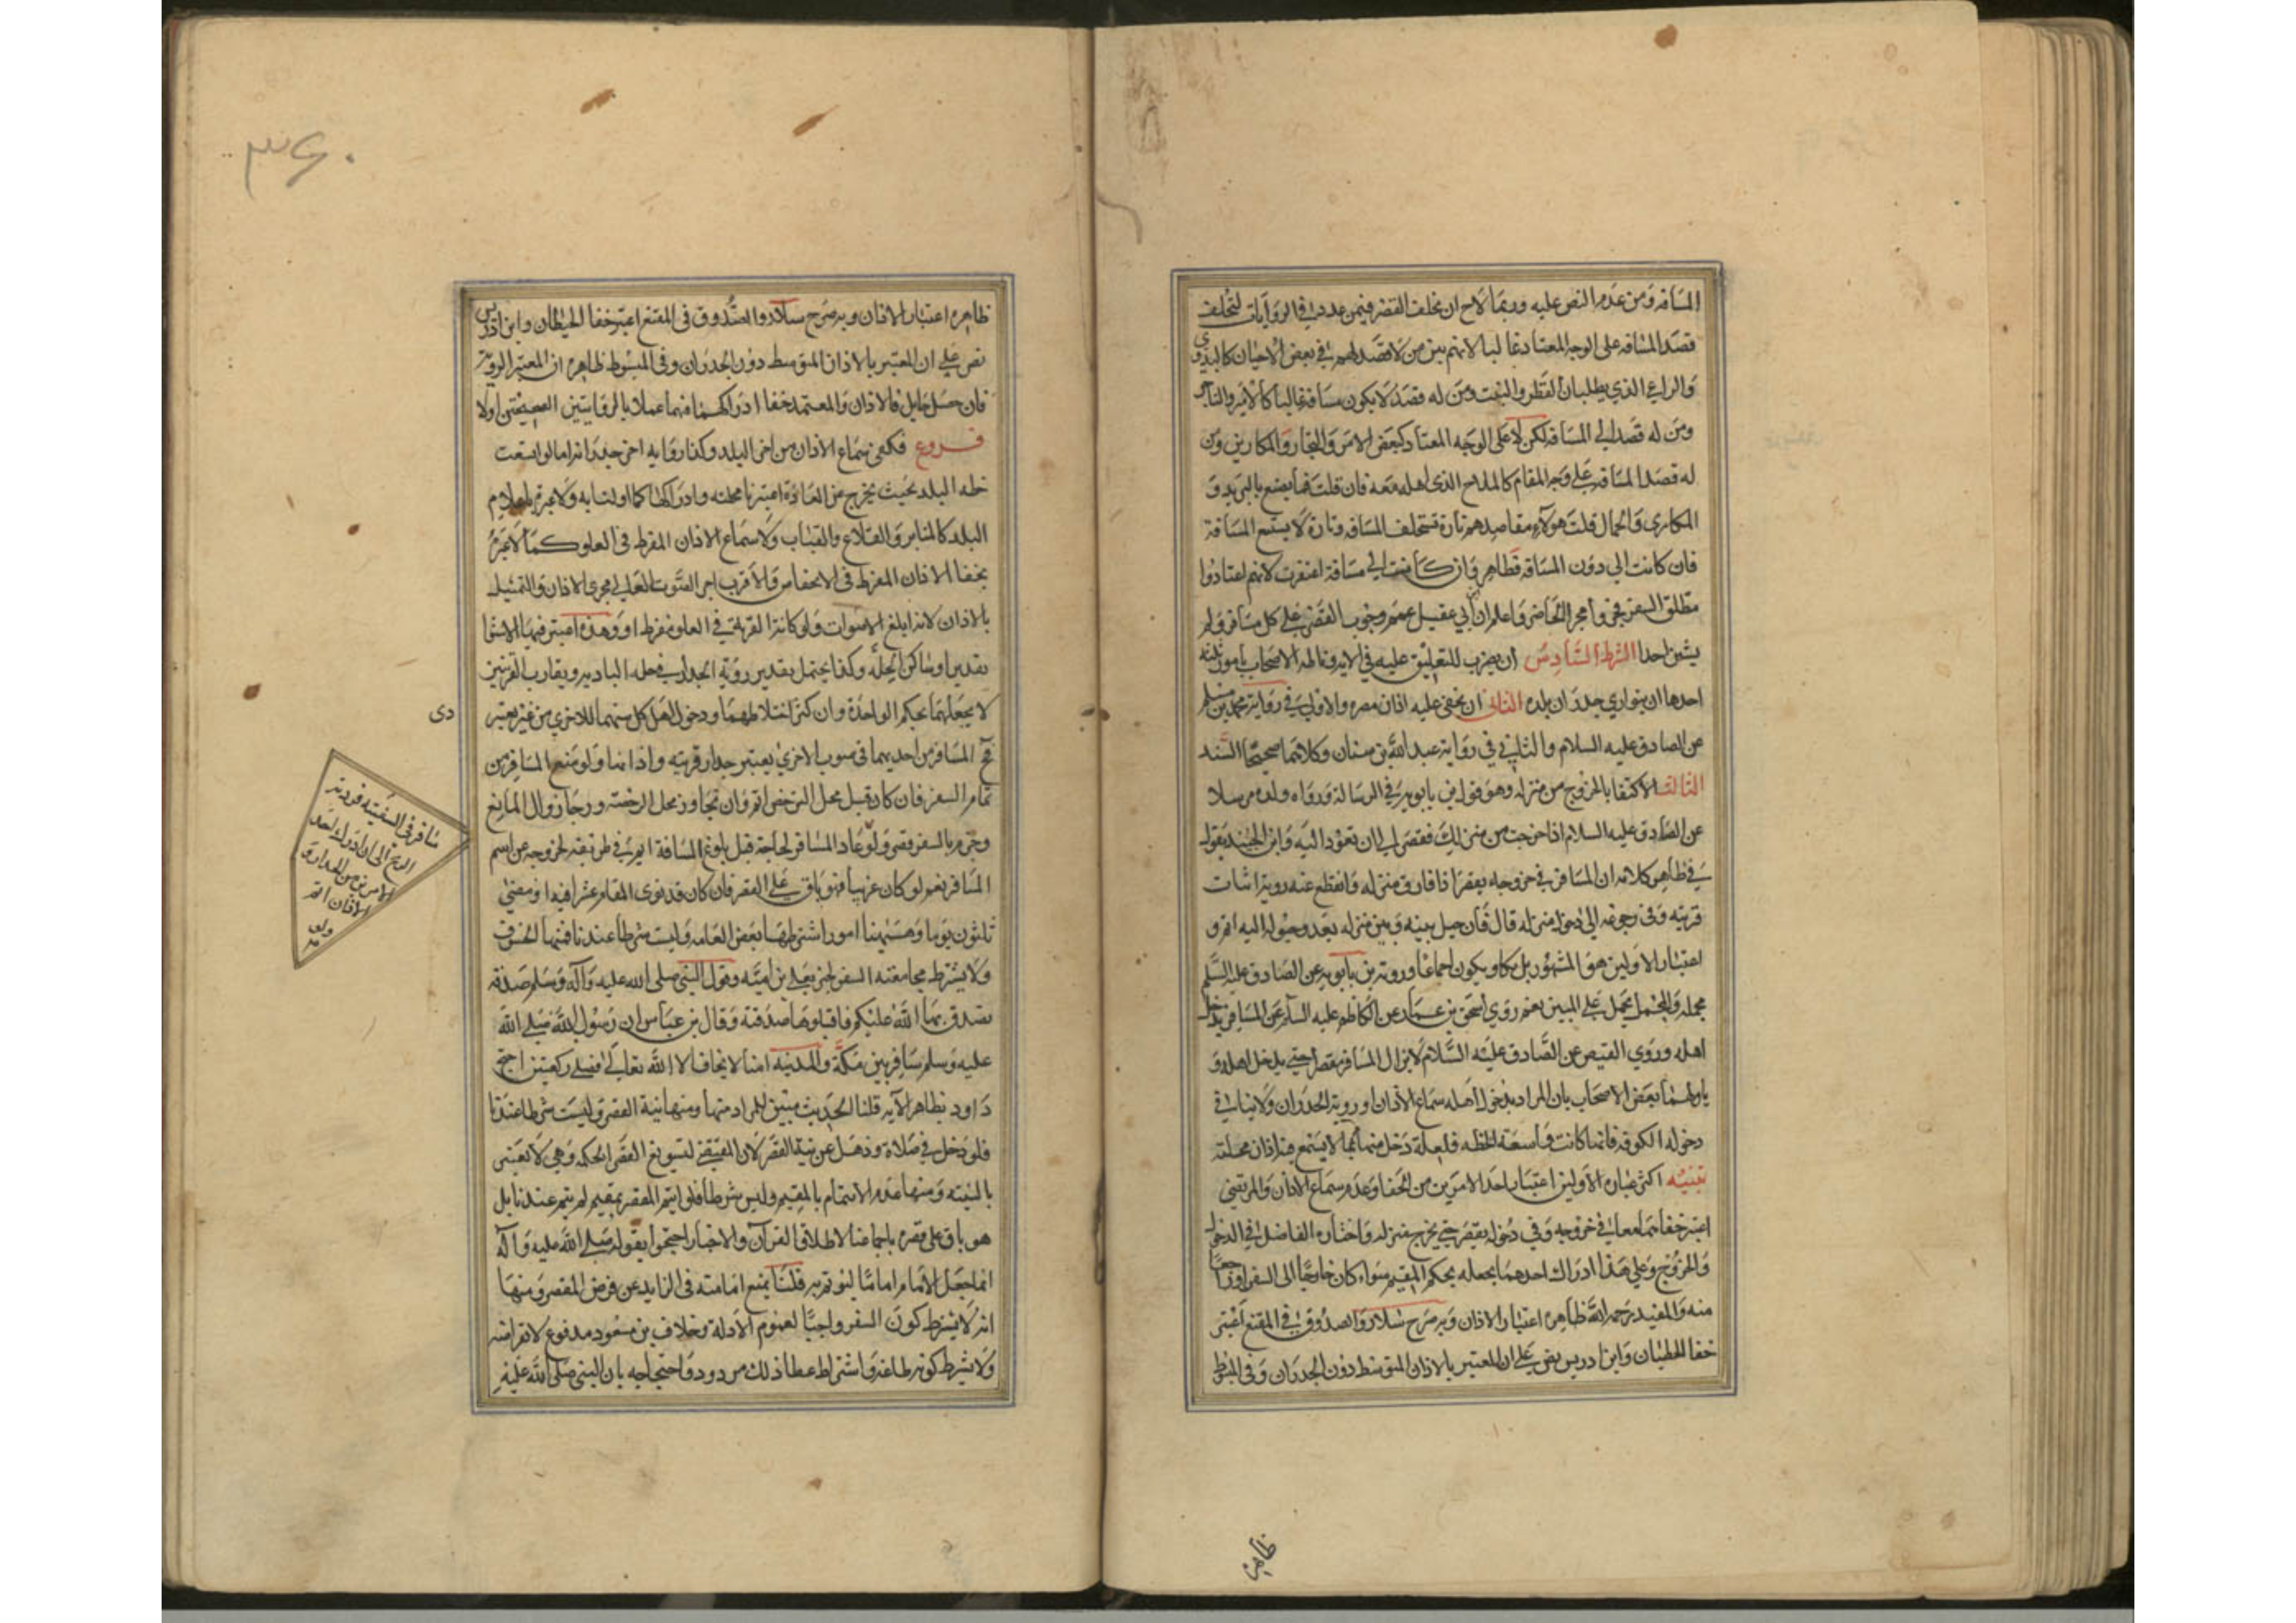 المسافر ومن عدم النص عليه وربما لاح ان تخلف القصر فيمن عددت في الروايات لتخلف
قصد المسافة على الوجه المعتاد غالبا لانهم بين من لا قصد لهم في بعض الاحيان كالبدوي
والراعي الذي يطلبان القطر والنبت ومن له قصد لا يكون مسافة غالبا كالامير والتاجر
ومن له قصد الى المسافة لكن لا على الوجه المعتاد كبعض الامر والتجار والمكارين ومن
له قصد المسافة على وجه المقام كالملاح الذى اهله معه فان قلت فما يصنع بالبريد و
المكارى والجمال قلت هولاء مقاصدهم تارة تتخلف المسافه وتارة لا يستتبع المسافة
فان كانت الى دون المسافة فظاهر وان كانت الى مسافة اغتفرت لانهم اعتادوا
مطلق السفر فجرى مجرى الحاضر واعلم ان ابي عقيل عمم وجوب القصر على كل مسافر ولم
يستثن احدا الشرط السادس ان يضرب للتعليق عليه في الايه وقاله الاصحاب بامور ثلثة
احدها ان يتوارى جدران بلده الثانى ان يخفى عليه اذان مصره والاول في رواية محمد بن مسلم
عن الصادق عليه السلام والثاني في رواية عبد الله بن سنان وكلاهما صحيحا السند
الثالث الاكتفا بالخروج من منزله وهو قول بن بابويه في الرسالة ورواه ولده مرسلا
عن الصادق عليه السلام اذا خرجت من منزلك فقصر الى ان تعود اليه وابن الجنيد يقول
في ظاهر كلامه ان المسافر في خروجه يقصر اذا فارق منزله وانقطع عنه روية ابيات
قريته وفى رجوعه الى دخول منزله قال فان حيل بينه وبين منزله بعد وصوله اليه اتم و
اعتبار الاولين هو المشهور بل يكاد يكون اجماعا ورويه بن بابويه عن الصادق عليه السلم
مجمله والمجمل يحمل على المبين نعم روي اسحق بن عمار عن الكاظم عليه السلم عن المسافر يدخل
اهله وروي العيص عن الصادق عليه السلام لا يزال المسافر مقصرا حتى يدخل اهله و
ياولهما بعض الاصحاب بان المراد بدخول اهله سماع الاذان او روية الجدران ولا ينافي
دخوله الكوفه فانها كانت واسعة الخطه فلعله دخل منها بما لا يسمع فيه اذان محلته
تنبيه اكثر عبارة الاولين اعتبار احد الامرين من الخفا وعدم سماع الاذان والمرتضى
اعتبر خفاهما معا في خروجه وفي دخوله يقصر حتى يخرج منزله واختاره الفاضل في الدخول
والخروج وعلى هذا ادراك احدهما يجعله بحكم المقيم سواء كان خارجا الى السفر او راجعا
منه والمفيد رحمه الله ظاهره اعتبار الاذان وبه صرح سلار والصدوق في المقنع اعتبر
خفا الحيطان وابن ادريس نص على ان المعتبر بالاذان المتوسط دون الجدران وفى المبسوط
ظاهره
٣٦٠
ظاهره اعتبار الاذان وبه صرح سلار والصدوق فى المقنع اعتبر خفا الحيطان وابن ادريس
نص على ان المعتبر بالاذان المتوسط دون الجدران وفى المبسوط ظاهره ان المعتبر الروية
فان حصل حايل فالاذان والمعتمد خفا ادراكهما منهما عملا بالروايتين الصحيحتين اولا
فروع فكفى سماع الاذان من اخر البلد وكذا رواية اخر جدرانه اما لو اتسعت
خطه البلد بحيث يخرج عن العادة اعتبرنا محلته وادراكها كما اولنا به ولا عبرة باعلام
البلد كالمناير والقلاع والقباب ولا سماع الاذان المفرط فى العلو كما لا عبرة
بخفا الاذان المفرط فى الانخفاض والاقرب اجر الصوت العالي مجرى الاذان والتمثيل
بالاذان لانه ابلغ الاصوات ولو كانت القرية في العلو مفرطا او وهدة اعتبر فيها الاستوا
تقديرا وساكن الحلة وكذا يحتمل تقدير روية الجدار في حله البادية وتقارب القريتين
لا يجعلهما بحكم الواحدة وان كثر اختلاطهما ودخول اهل كل منهما للاخري من غير تعتبر
فى المسافر من احديهما فى صوب الاخري يعتبر جدار قريته واذانها ولو منع المسافر من
تمام السفر فان كان قبل محل الترخص اتم وان تجاوز محل الرخصة ورجا زوال المانع
وجزم بالسفر قصر ولو عاد المسافر لحاجة قبل بلوغ المسافة اتم في طريقه لخروجه عن اسم
المسافر نعم لو كان غريبا فهو باق على القصر فان كان قد نوى المقام عشرا فيها او مضى
ثلثون يوما وهيهنا امور اشترطها بعض العامه وليست شرطا عندنا فمنها الخوف
ولا يشترط مجامعته السفر لخبر يعلى بن اميه وقول النبي صلى الله عليه وآله وسلم صدقة
تصدق بها الله عليكم فاقبلوها صدقته وقال بن عباس ان رسول الله صلى الله
عليه وسلم سافر بين مكة والمدينه امنا لا يخاف الا الله تعالى فصلى ركعتين احتج
داود بظاهر الآيه قلنا الحديث مبين للمراد منها ومنها نية القصر وليست شرطا عندنا
فلو دخل في صلاة وذهل عن نية القصر كان المقتضى لتسويغ القصر الحكم وهي لا تعتبر
بالنيته ومنها عدم الايتمام بالمقيم وليس شرطا فلو ايتم المقصر بمقيم لم يتم عندنا بل
هو باق على قصره باجماعنا لاطلاق القرآن والاخبار احتجوا بقوله صلى الله عليه وآله
انما جعل الامام اماما ليوتم به قلنا يمنع امامته فى الزايد عن فرض المقصر ومنها
انه لا يشترط كون السفر واجبا لعموم الادلة وخلاف بن مسعود مدفوع لانقراضه
ولا يشرط كونه طاعة واشتراط عطا ذلك مردود واحتجاجه بان النبي صلى الله عليه
دى
سافر فى السفينه فردته
الريح الى ان ادرك احد
الامرين من الجدار و
الاذان اتم